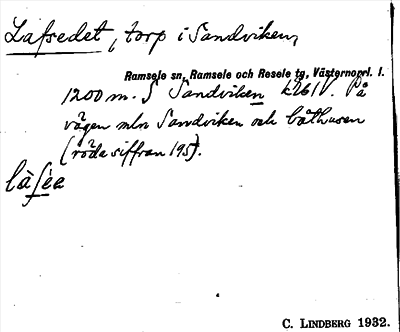 Lafsedet, torp i Sandviken,
Ramsele sn, Ramsele och Resele tg, Västernorrl. l.
1200 m. S Sandviken k261V. På
vägen mln Sandviken och båthusen
(röda siffran 195).
là
C. LINDBERG 1932.